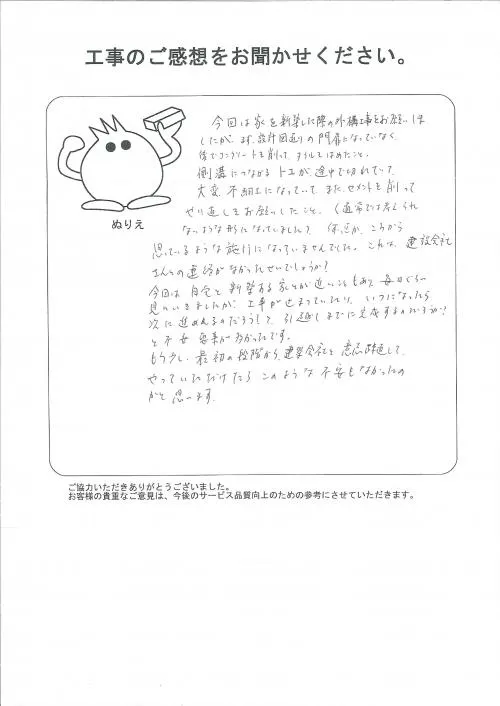 工事のご感想をお聞かせください。
今回は家を新築した際の外構工事をお願いしま
したが、まず、設計図通りの門扉になっていなく、
後でコンクリートを削って、タイルをはめたこと、
側溝につながる トイが、途中で切れていて、
大変、不細工になっていて、また、セメントを削って
やり直しをお願いしたこと、(通常では考えられ
ないような形になっていました?
思っているような施行になっていませんでした。これは、建設会社
さんとの連絡がなかったせいでしょうか?
今回は自宅と新築する家とが近いこともあり、毎日ぐらい
見にいきましたが、工事が止まっていたり、いつになったら
次に進めるのだろうして、引越しまでに完成するのだろうか?
と不安要素が多かったです。
もう少し、最初の段階から建築会社と意思疎通して、
やっていただけたらこのような不安もなかったの
かと思います。
ぬりえ
ご協力いただきありがとうございました。
お客様の貴重なご意見は、今後のサービス品質向上のための参考にさせていただきます。